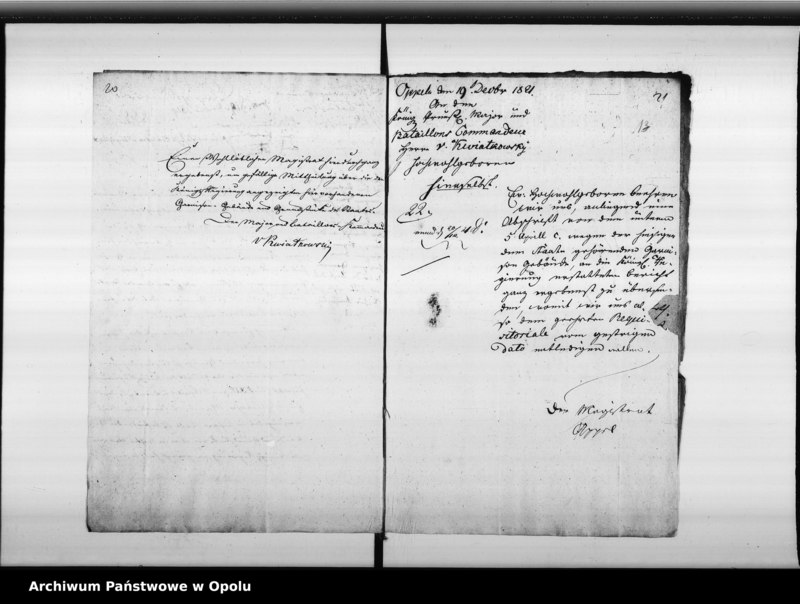 20
Einen Wohllöblichen Magistrat hierdurch ganz
ergebenst, um gefällige Mittheilung über die der
Königl. Regierung angezeigten hier vorhandenen
Garnison-Gebäude und Grundstücke des Staates.
Der Major und Bataillons-Kommandeur
v Kwiatkowsky
Oppeln den 19t Decbr 1821.
An den
Königl. Preuß. Major und
Bataillons Commandeur
Herrn v. Kwiatkowsky
Hochwohlgeboren
hieselbst.
21
13
22
Er. Hochwohlgeboren beehren
wir uns, anliegend eine
Abschrift von dem unterm
5 April c. wegen der hiesigen
dem Staate gehörenden Garni-
son Gebäude, an die Königl. Re-
gierung erstatteten Bericht
ganz ergebenst zu übersen-
den womit wir uns
so dem geehrten Requi-
sitoriale vom gestrigen
dato entledigen wollen.
Der Magistrat
Oppeln
Archiwum Państwowe w Opolu